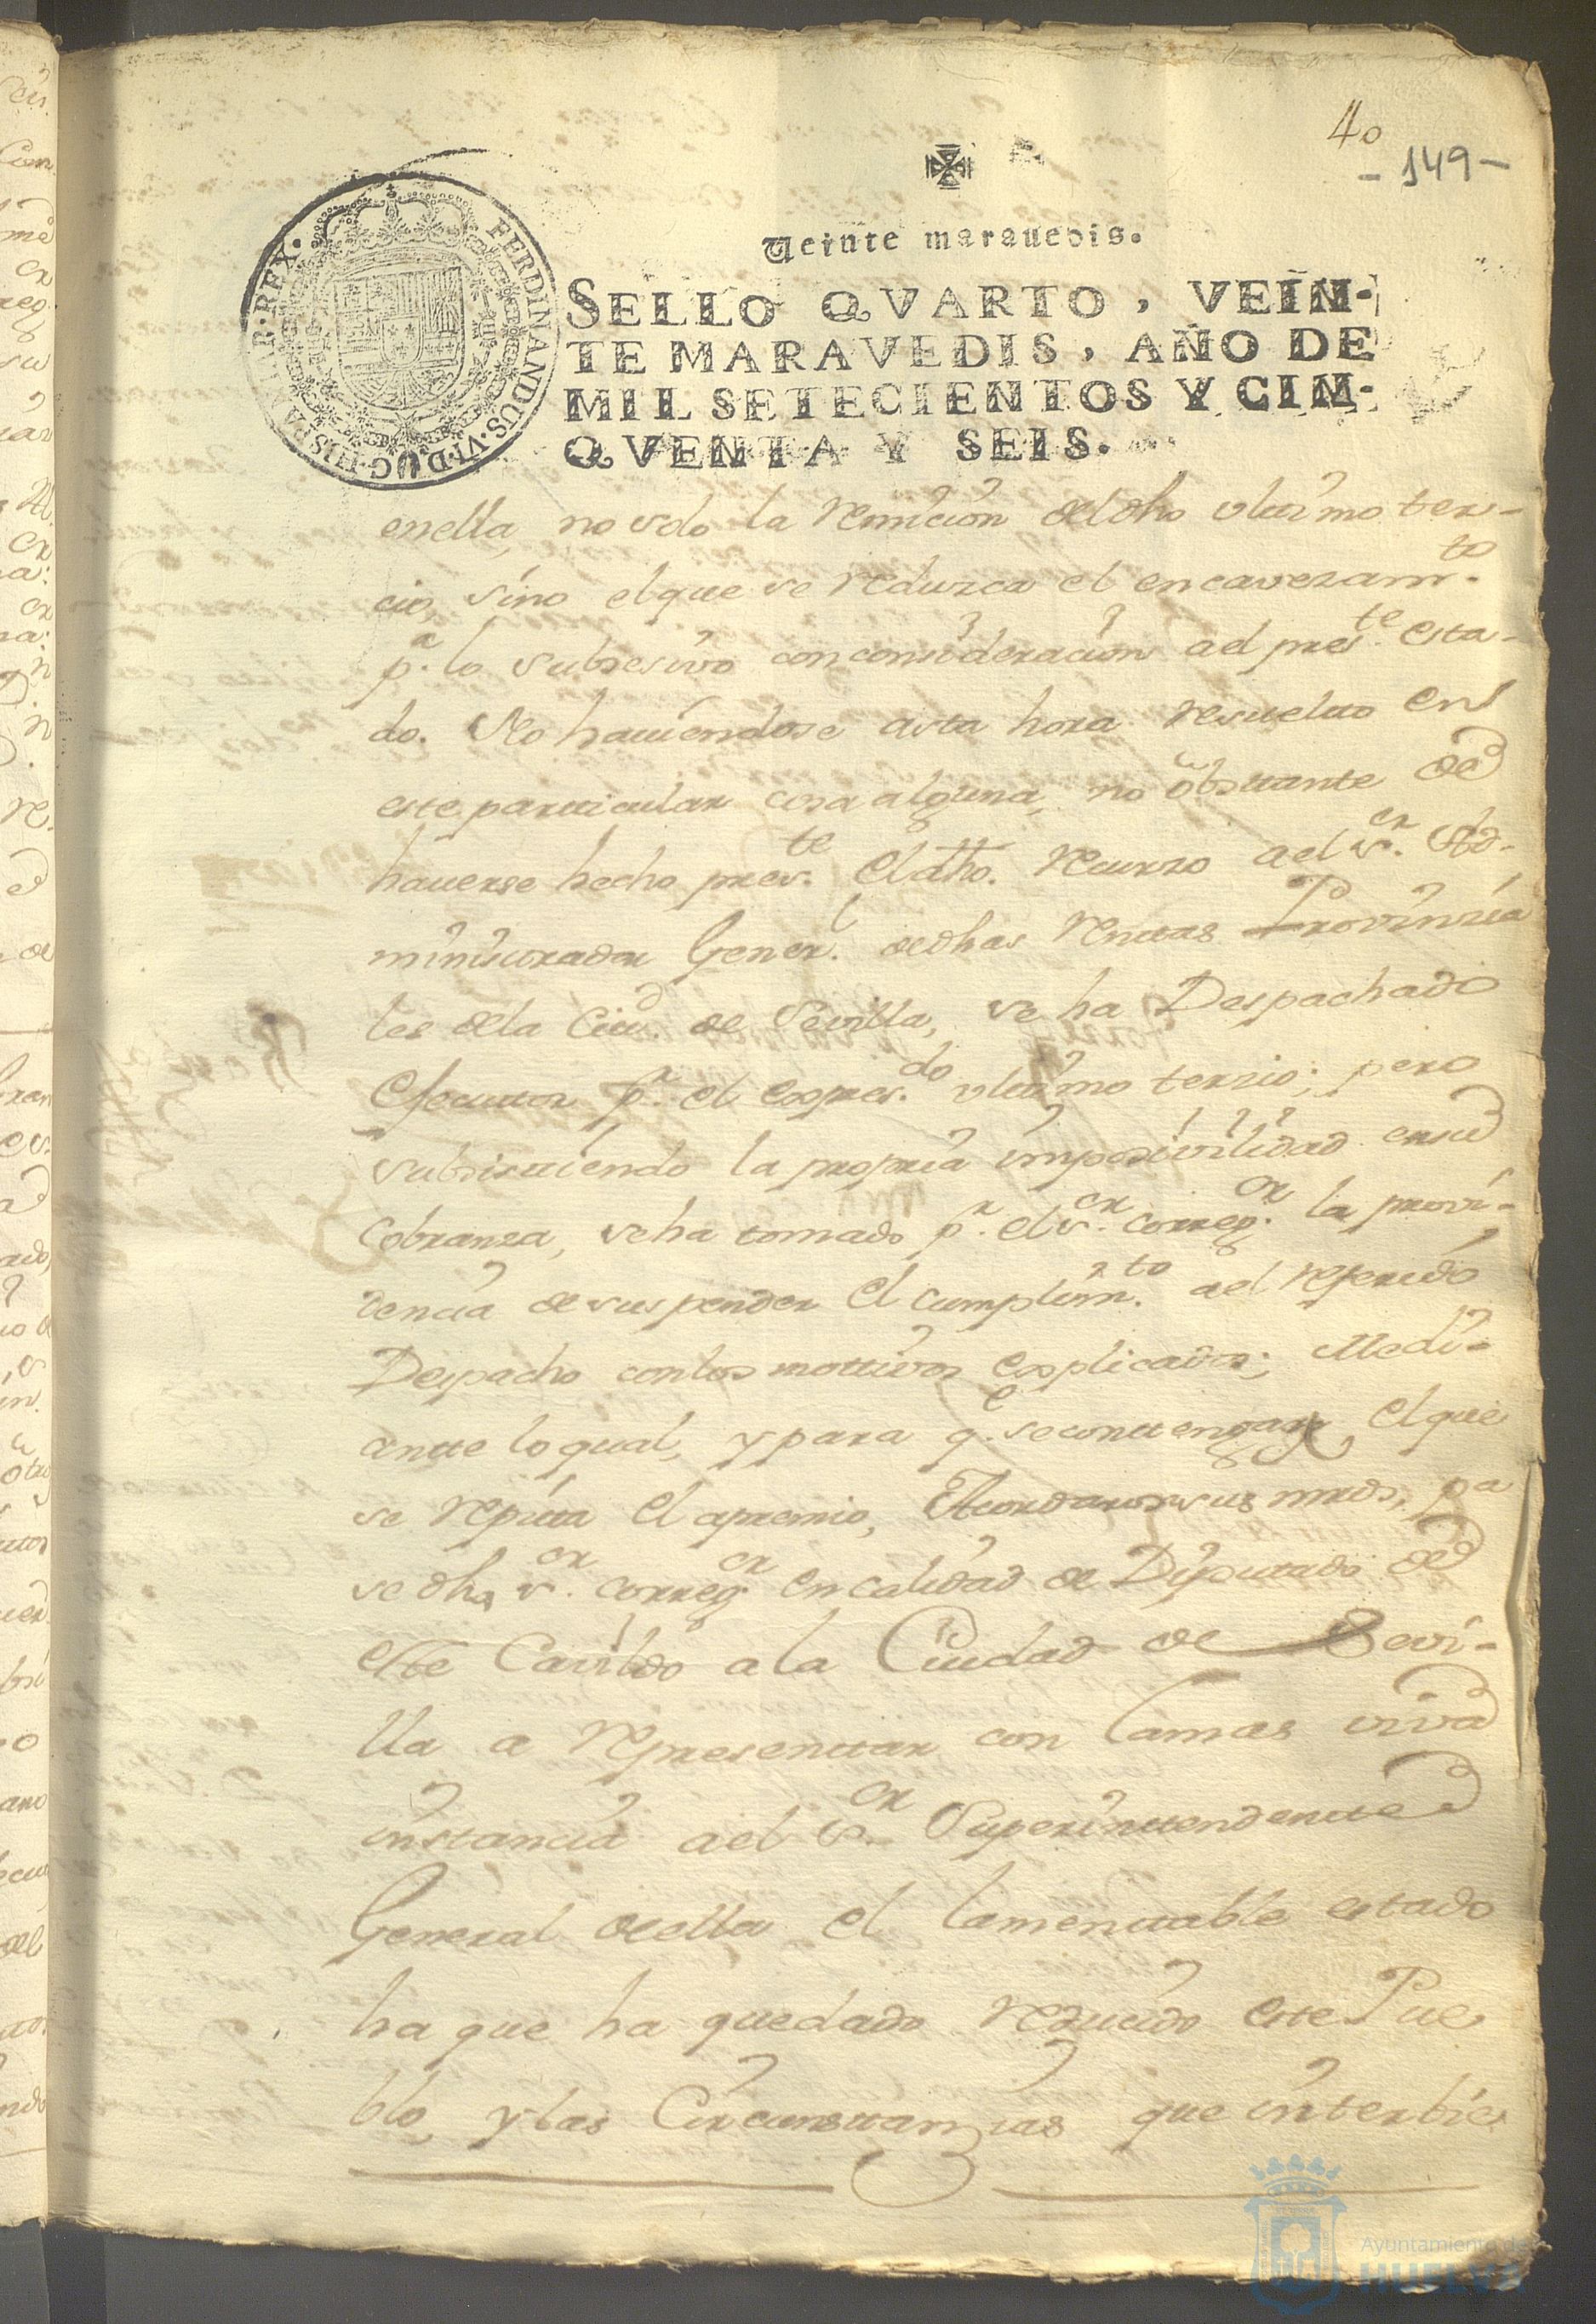 40
- 149 -
Veinte maravedis.
SELLO QVARTO, VEIN-
TE MARAVEDIS, AÑO DE
MIL SETECIENTOS Y CIN-
QVENTA Y SEIS.
FERDINANDUS·VI·D·G·HISPANIAR·REX·
enella, no solo la remicion del dho vltimo ter-
cio, sino elque se reduzca el encavezam.to
p.a lo subsesivo con consideracion ael pres.te esta-
do. No haviendose asta hora resuelto en
este particular cosa alguna, no obstante de
haverse hecho pres.te el dho. recurso ael s.or Ad-
ministrador Gener.l dedhas rentas Provinzia
les dela Ciu.d de Sevilla, se ha Despachado
Executor p.r el expres.do vltimo terzio; pero
subsistiendo la propria imposivilidad ensu
Cobranza, seha tomado p.r el s.or correg.or la provi-
dencia de suspender el cumplim.to ael referido
Despacho conlos mottivos explicados; Medi-
ante loqual, y para q.e secontenga el que
se repita el apremio, Acordaron sus mrds, pa
se dho s.or correg.or en calidad de Diputado de
este Cavildo a la Ciudad de Sevi-
lla a representar con la mas viva
instancia ael s.or Superinttendente
General deella el lamentable estado
ha que ha quedado reducido este Pue
blo, y las Circunstanzias que interbie
Ayuntamiento de
HUELVA